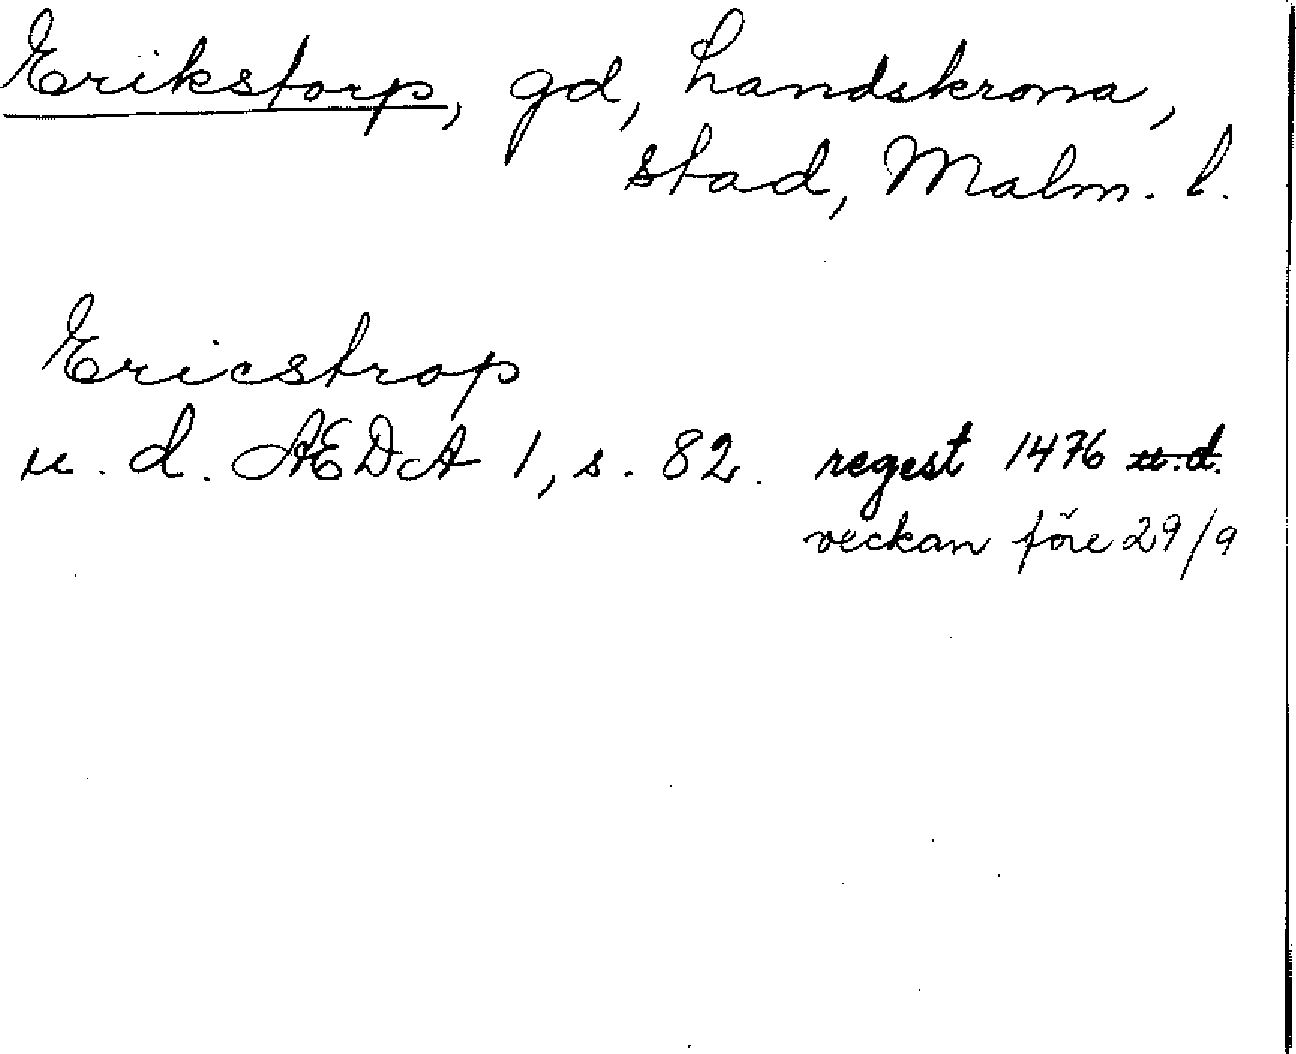 Erikstorp, gd, Landskrona,
stad, Malm. l.
Ericstrop
u. d. AEDA 1, s. 82. regest 1476 u.d.
veckan före 29/9